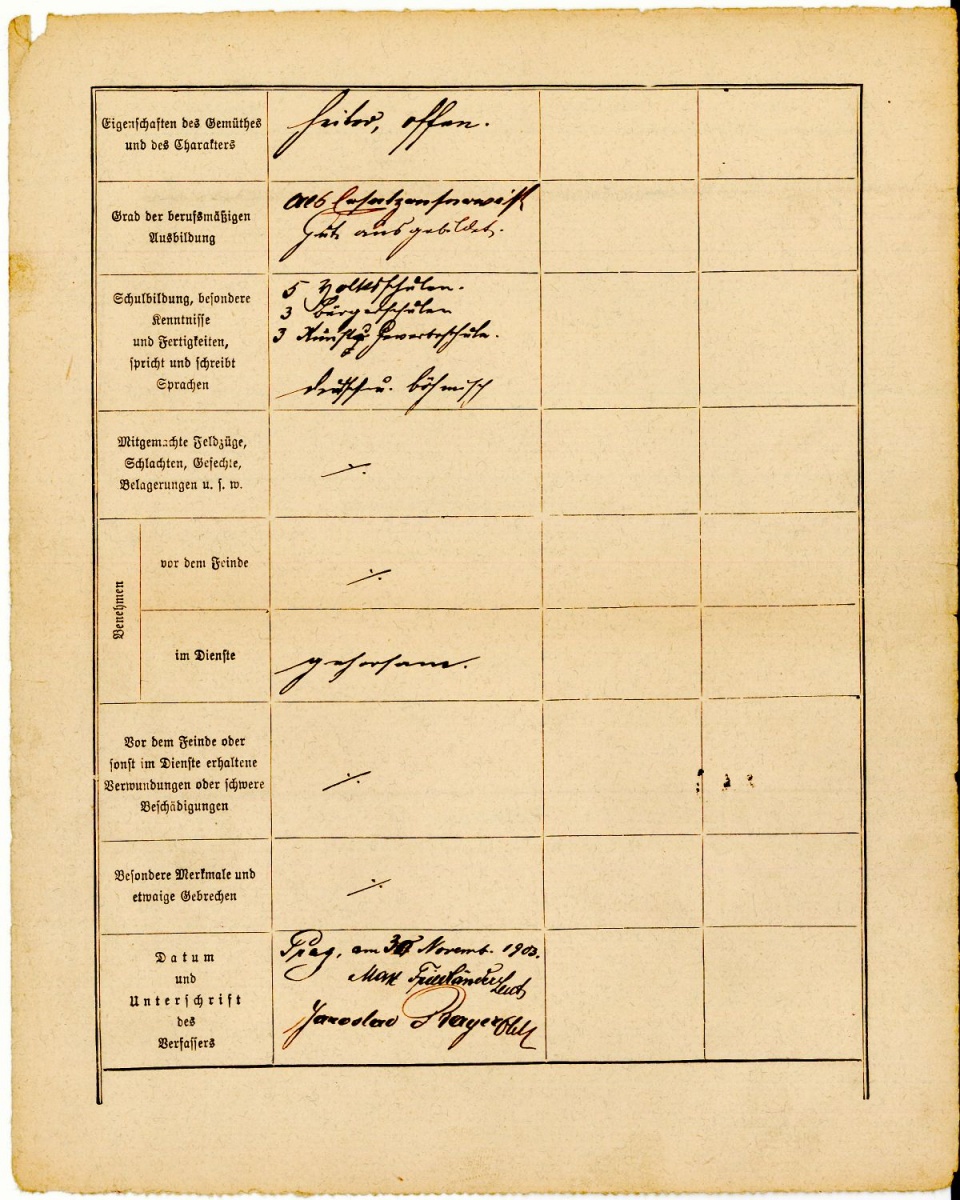 Eigenschaften des Gemüthes
und des Charakters
heiter, offen.
Grad der berufsmäßigen
Ausbildung
als Ersatzreservist
gut ausgebildet.
Schulbildung, besondere
Kenntnisse
und Fertigkeiten,
spricht und schreibt
Sprachen
5 Volksschulen.
3 Bürgerschulen
3 Kunst u. Gewerbeschule.
deutsch u. böhmisch
Mitgemachte Feldzüge,
Schlachten, Gefechte,
Belagerungen u. s. w.
⁒
Benehmen
vor dem Feinde
⁒
im Dienste
gehorsam.
Vor dem Feinde oder
sonst im Dienste erhaltene
Verwundungen oder schwere
Beschädigungen
⁒
Besondere Merkmale und
etwaige Gebrechen
⁒
Datum
und
Unterschrift
des
Verfassers
Prag, am Novemb. 1903.
Max Friedländer Leut
Jaroslav Oblt